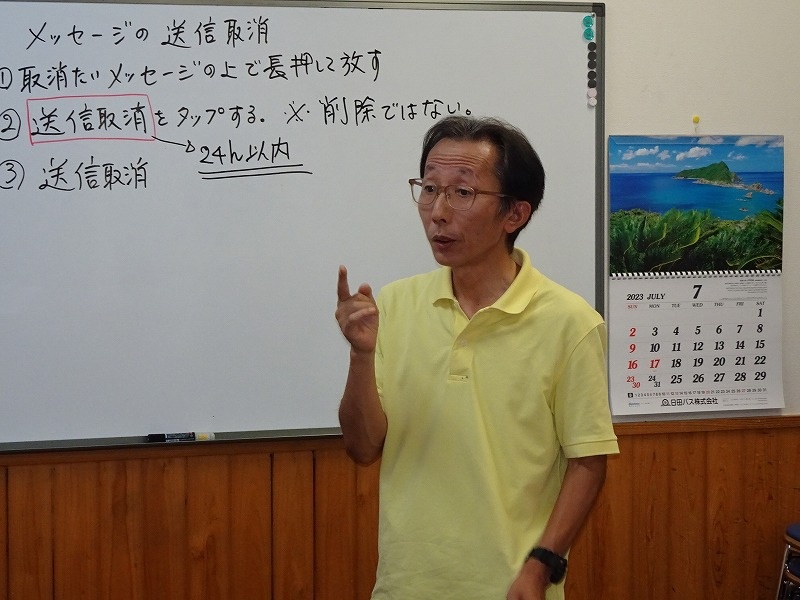 メッセージの 送信取消
①取消たいメッセージの上で長押しして放す
② 送信取消をタップする. ※ 削除ではない。
24h以内
③ 送信取消
2023 JULY 7
SUN MON TUE WED THU FRI SAT
1
2 3 4 5 6 7 8
9 10 11 12 13 14 15
16 17 18 19 20 21 22
23/30 24/31 25 26 27 28 29
日田バス株式会社